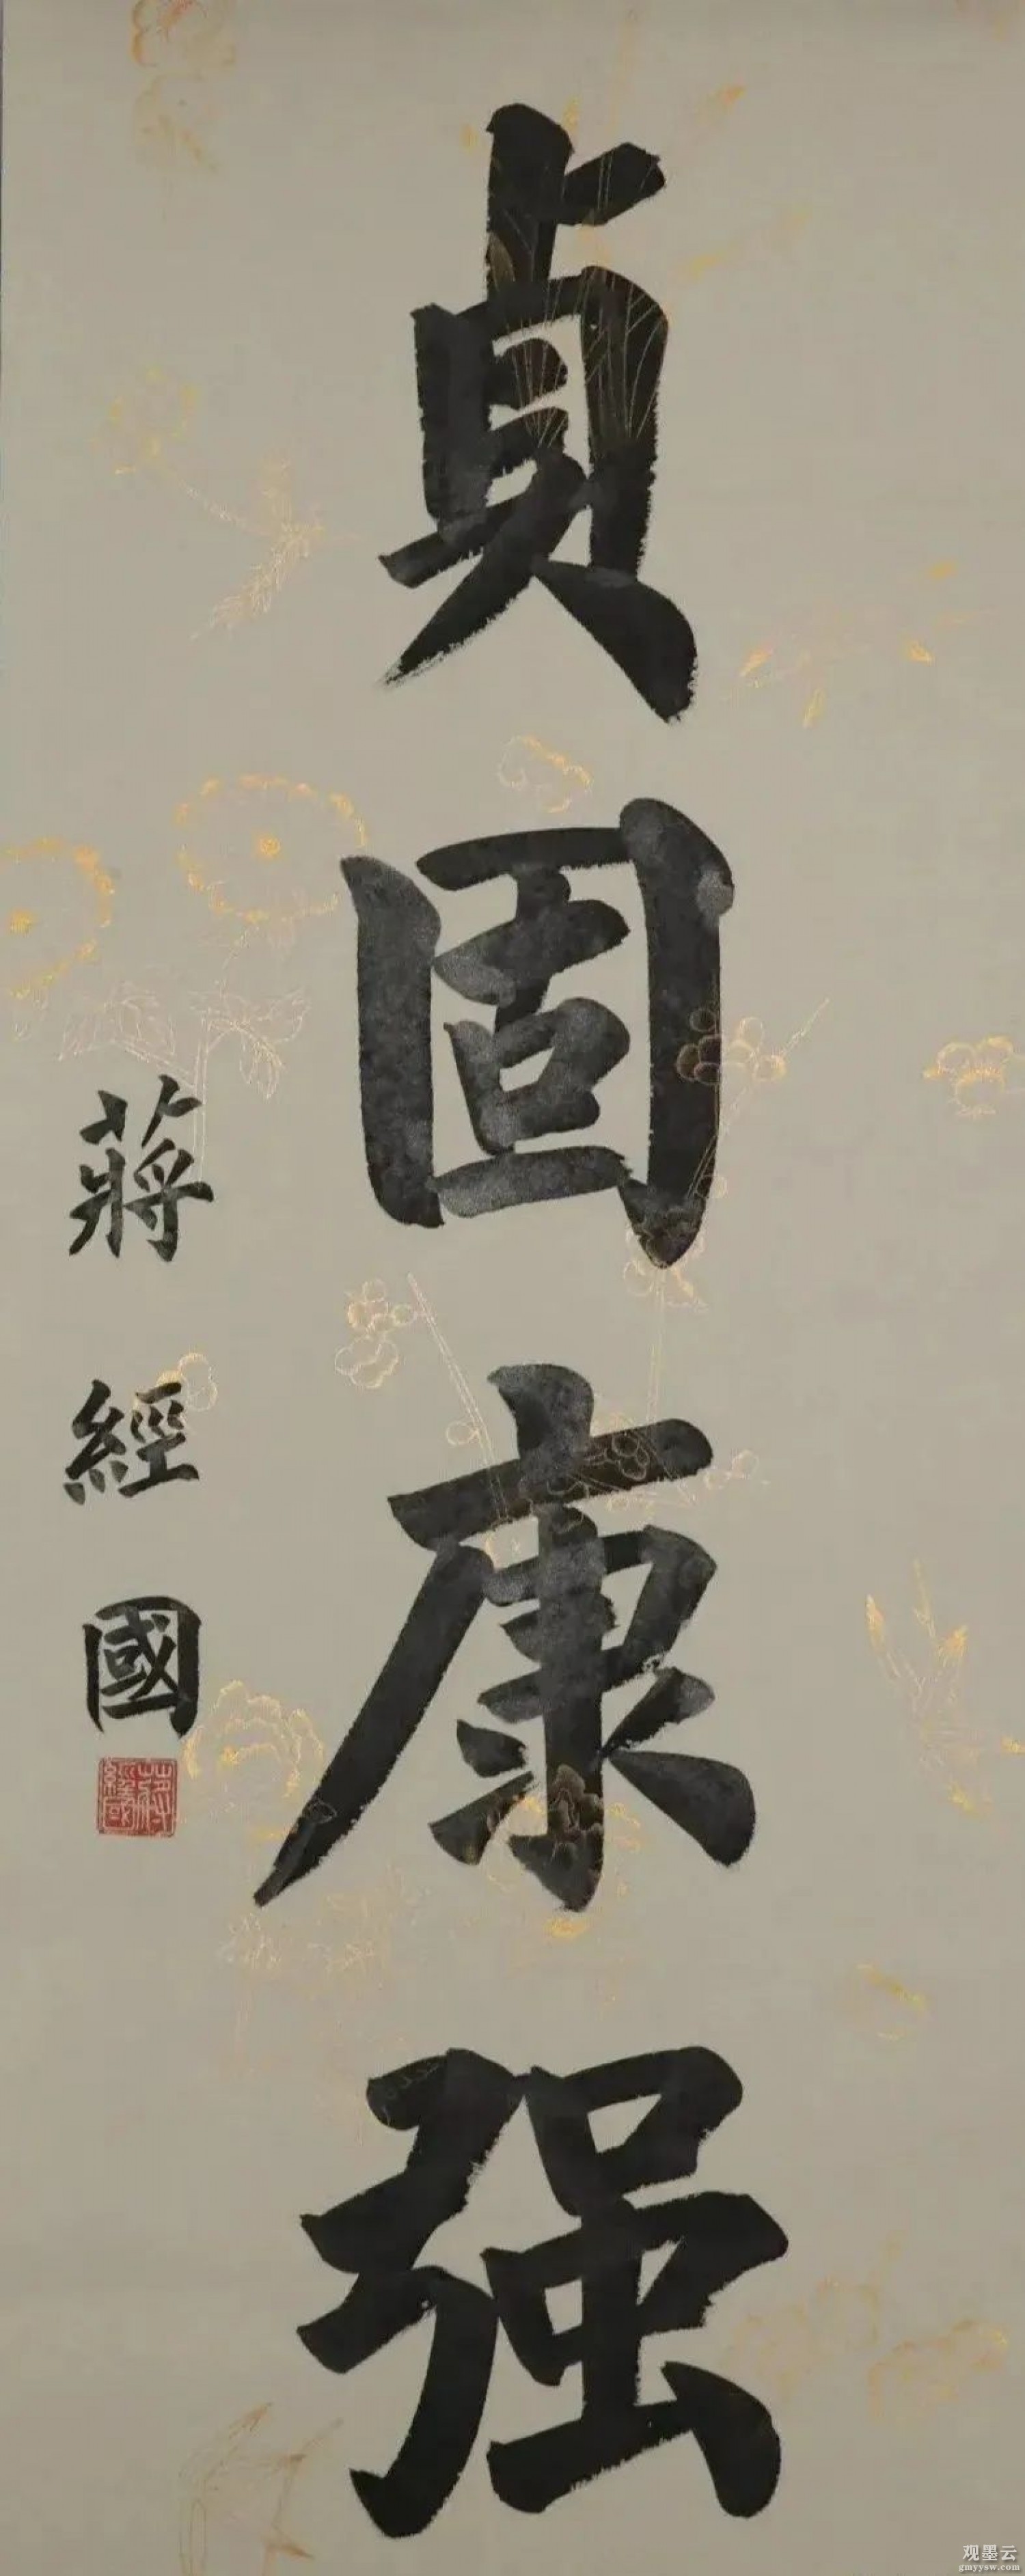 貞固康强
蔣經國
蔣經國
观墨云
gmyysw.com